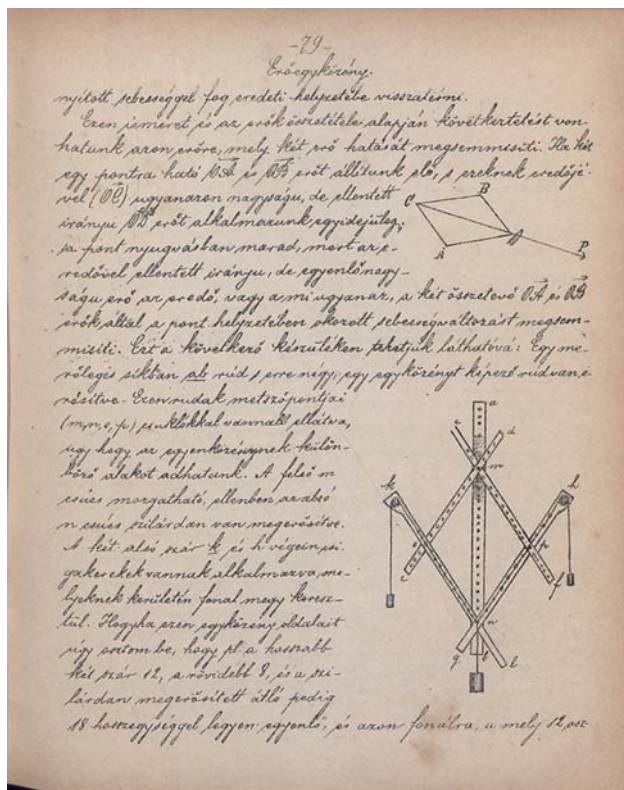 -79-
Erőegyközény.
nyitott sebességgel fog eredeti helyzetébe visszatérni.
Ezen ismeret és az erők összetétele alapján következtetést von-
hatunk azon erőre, mely két erő hatását megsemmisiti. Ha két
egy pontra ható OA és OB erőt állitunk elő, s ezeknek eredőjé-
vel (OC) ugyanazon nagyságu, de ellentett
irányu erőt alkalmazunk egyidejüleg,
a pont nyugvásban marad, mert az e-
redővel ellentett irányu, de egyenlő nagy-
ságu erő az eredő, vagy a mi ugyanaz, a két összetevő OA és OB
erők által a pont helyzetében okozott sebességváltozást megsem-
misiti. Ezt a következő készüléken tehetjük láthatóvá: Egy me-
rőleges síkban ab rúd s erre négy, egy egyközényt képező rud van e-
rősitve. Ezen rudak metszőpontjai
(m, n, o, p) csuklókkal vannak ellátva,
úgy hogy az egyenközénynek külön-
böző alakot adhatunk. A felső m
csúcs mozgatható, ellenben az alsó
n csúcs szilárdan van megerősitve.
A két alsó szár k és h végein csi-
gakerekek vannak alkalmazva, me-
lyeknek kerületén fonal megy keresz-
tül. Hogyha ezen egyközény oldalait
úgy osztom be, hogy pl. a hosszabb
két szár 12, a rövidebb 8, és a szi-
lárdan megerősitett átló pedig
18 hosszegységgel legyen egyenlő, és azon fonálra, a mely 12 osz-
C
B
A
O
P
a
e
d
m
k
h
o
p
c
f
n
g
b
l